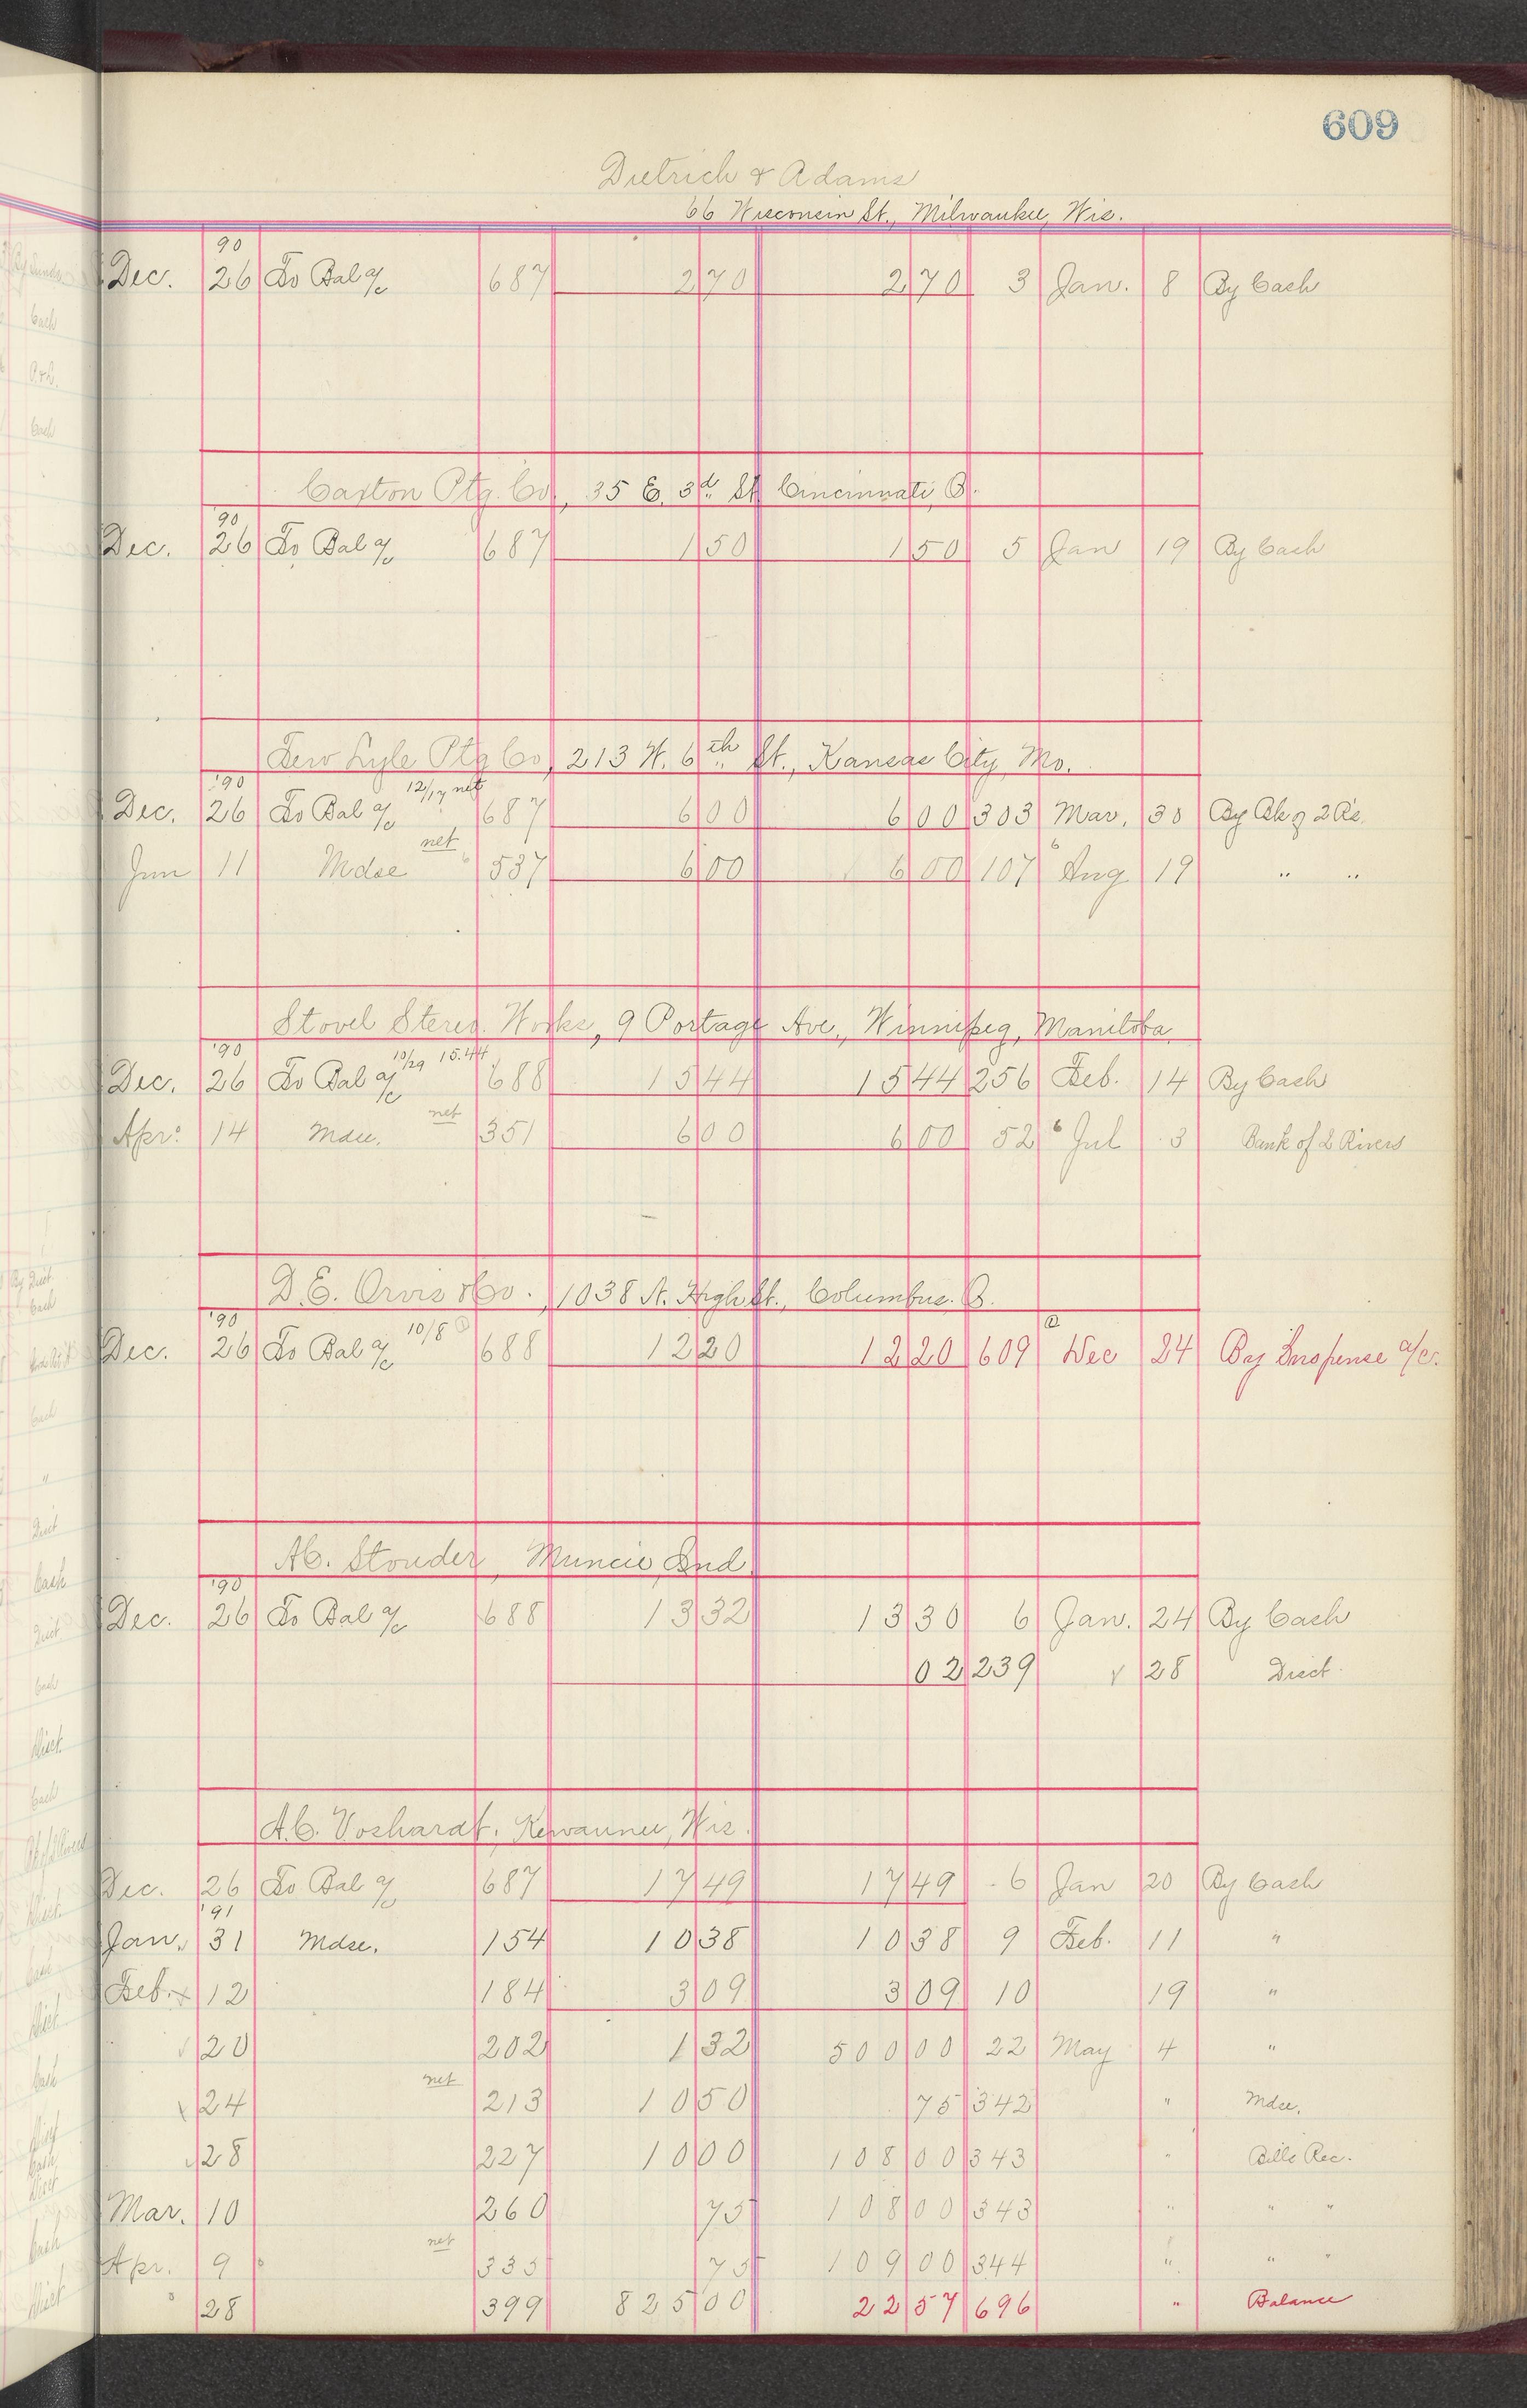 609
Dietrich & Adams
66 Wisconsin St., Milwaukee, Wis.
90
Dec. 26 To Bal a/c 687 2 70 2 70 3 Jan. 8 By Cash
Caxton Ptg. Co., 35 E. 3d St Cincinnati, O.
90
Dec. 26 To Bal a/c 687 1 50 1 50 5 Jan 19 By Cash
Lyle Ptg Co, 213 W. 6th St., Kansas City, Mo.
'90
Dec. 26 To Bal a/c 12/17 net 687 6 00 6 00 303 Mar. 30 By Bk of 2 Rs.
Jun 11 Mdse net 537 6 00 6 00 107 6 Aug 19 " "
Stovel Stereo. Works, 9 Portage Ave., Winnipeg, Manitoba
'90
Dec. 26 To Bal a/c 10/29 15.44 688 15 44 15 44 256 Feb. 14 By Cash
Apr. 14 Mdse. net 351 6 00 6 00 52 6 Jul 3 Bank of 2 Rivers
D.E. Orvis & Co., 1038 N. High St., Columbus. O.
'90
Dec. 26 To Bal a/c 10/8 688 12 20 12 20 609 Dec 24 By Suspense a/c.
A.C. Stouder, Muncie, Ind.
'90
Dec. 26 To Bal a/c 688 13 32 13 30 6 Jan. 24 By Cash
02 239 28 Disct.
A.C. Voshardt, Kewaunee, Wis.
Dec. 26 To Bal a/c 687 17 49 17 49 6 Jan 20 By Cash
'91
Jan. 31 Mdse. 154 10 38 10 38 9 Feb. 11 "
Feb. 12 184 3 09 3 09 10 19 "
20 202 1 32 500 00 22 May 4 "
24 net 213 10 50 75 342 " Mdse.
28 227 10 00 108 00 343 " Bills Rec.
Mar. 10 260 75 108 00 343 " " "
Apr. 9 net 335 75 109 00 344 " " "
28 399 825 00 22 57 696 " Balance